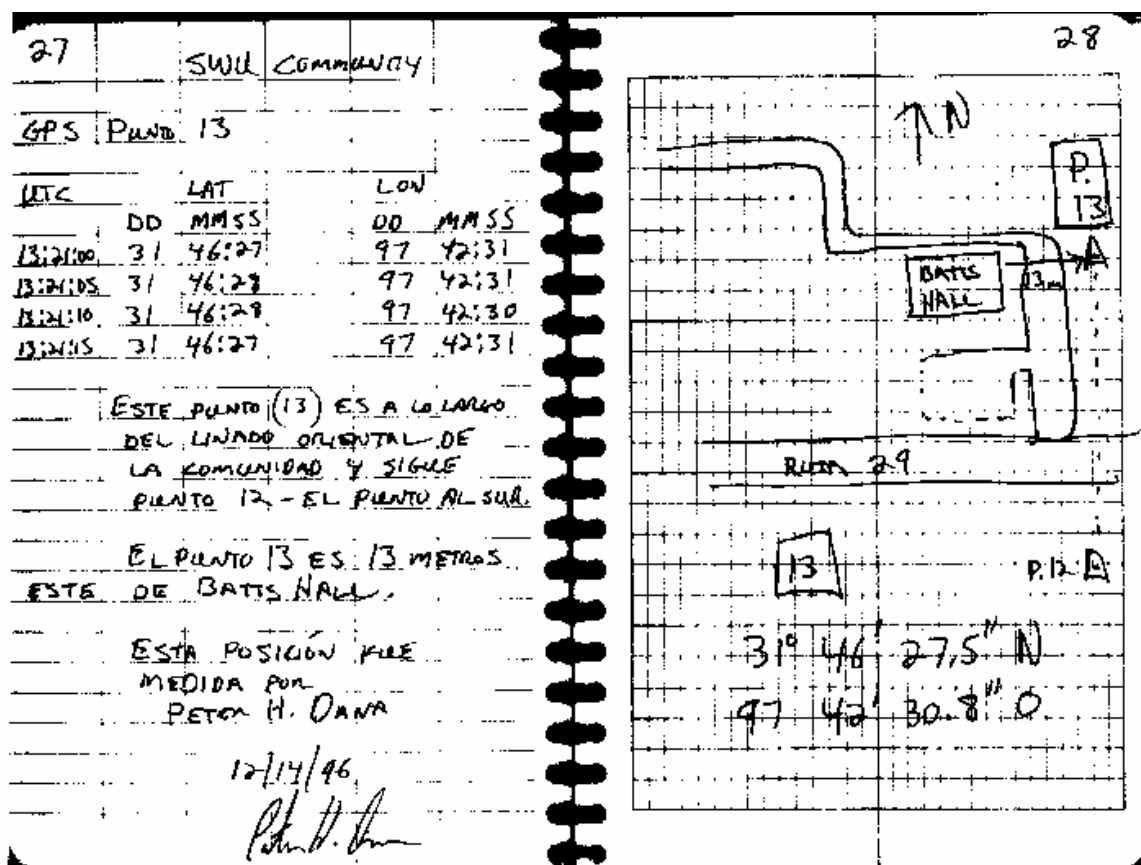 27
SWU COMMUNITY
GPS PUNTO 13
UTC LAT LON
DD MMSS DD MMSS
13:21:00 31 46:27 97 42:31
13:21:05 31 46:28 97 42:31
13:21:10 31 46:28 97 42:30
13:21:15 31 46:27 97 42:31
ESTE PUNTO (13) ES A LO LARGO
DEL LINADO ORIENTAL DE
LA KOMUNIDAD Y SIGUE
PUNTO 12 - EL PUNTO AL SUR.
EL PUNTO 13 ES 13 METROS
ESTE DE BATTS HALL.
ESTA POSICIÓN FUE
MEDIDA POR
PETER H. DANA
12/14/96
Peter H. Dana
28
N
P.
13
BATTS
HALL
13m
RUTA 29
13
P.12
31° 46' 27,5" N
97 42' 30.8" O